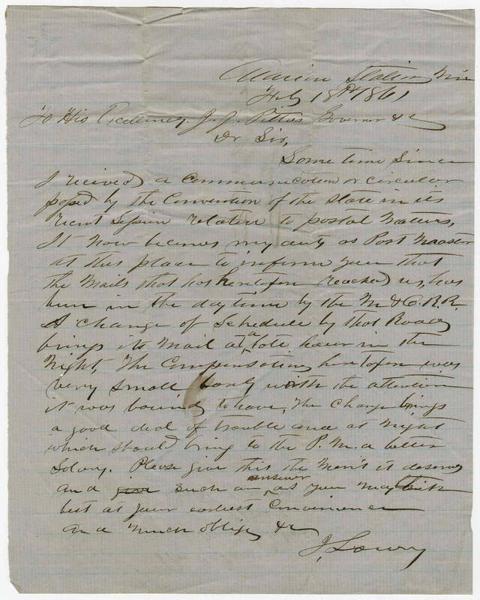 Station Miss
Feby 18th 1861
To His Excellency J. J. Pettus Governor &c
Dr Sir,
Some time Since
I reicived a Communication or circular
passed by the Convention of the State in its
recent session relative to postal matters,
It now becomes my duty as Post Master
at this place to inform you that
the Mails that has heretofore reached us, has
been in the day time by the M & O. R. R.
A Change of Schedule by that Road
brings the Mail at, late hour in the
Night, The Compensation heretofore was
very small with the attention
it was bound to have, The change brings
a good deal of trouble and at night
which should bring to the P. M. a better
Salary. Please give this the Merit it deserves
and such an answer, as you may
but at your earliest Convenience
and much oblige &c
J. Lowry